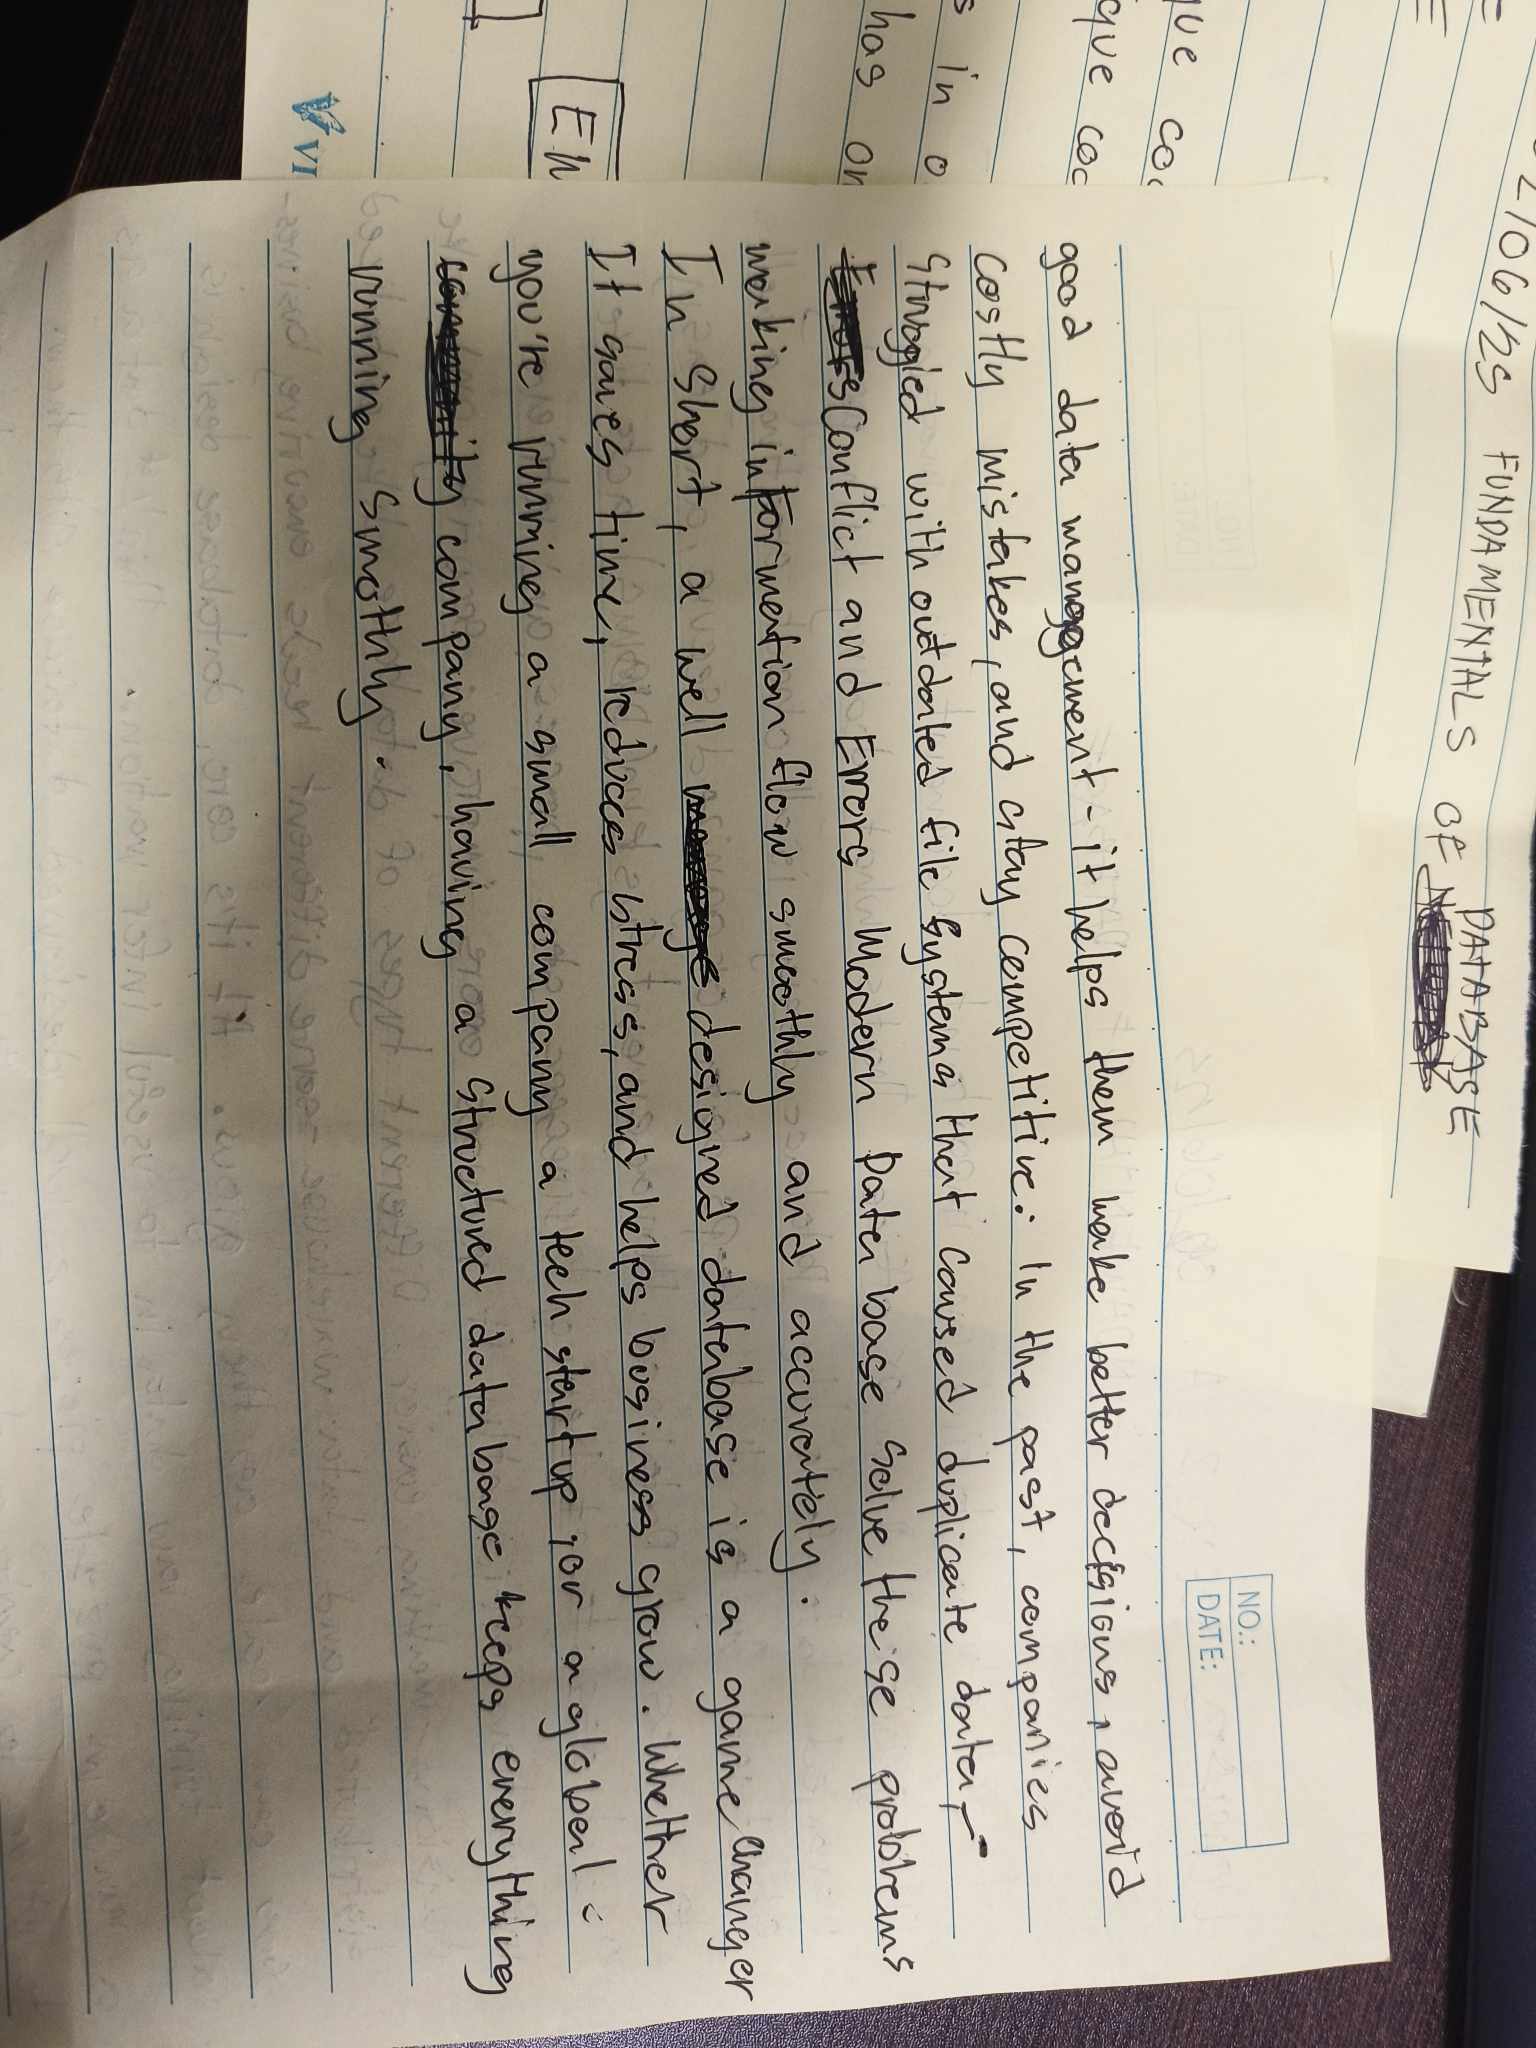 02/06/25 FUNDAMENTALS OF DATABASE
que co
que coc
s in o
has on
En
VI
NO.:
DATE:
good data management - it helps them make better decisions, avoid
costly mistakes, and stay competitive. In the past, companies
Struggled with outdated file systems that caused duplicate data,
Conflict and Errors Modern Data base solve these problems
making information flow smoothly and accurately.
In Short, a well designed database is a game changer
It saves time, reduces stress, and helps business grow. Whether
you're running a small company a tech startup, or a global
company, having a structured data base keeps everything
running smothly.